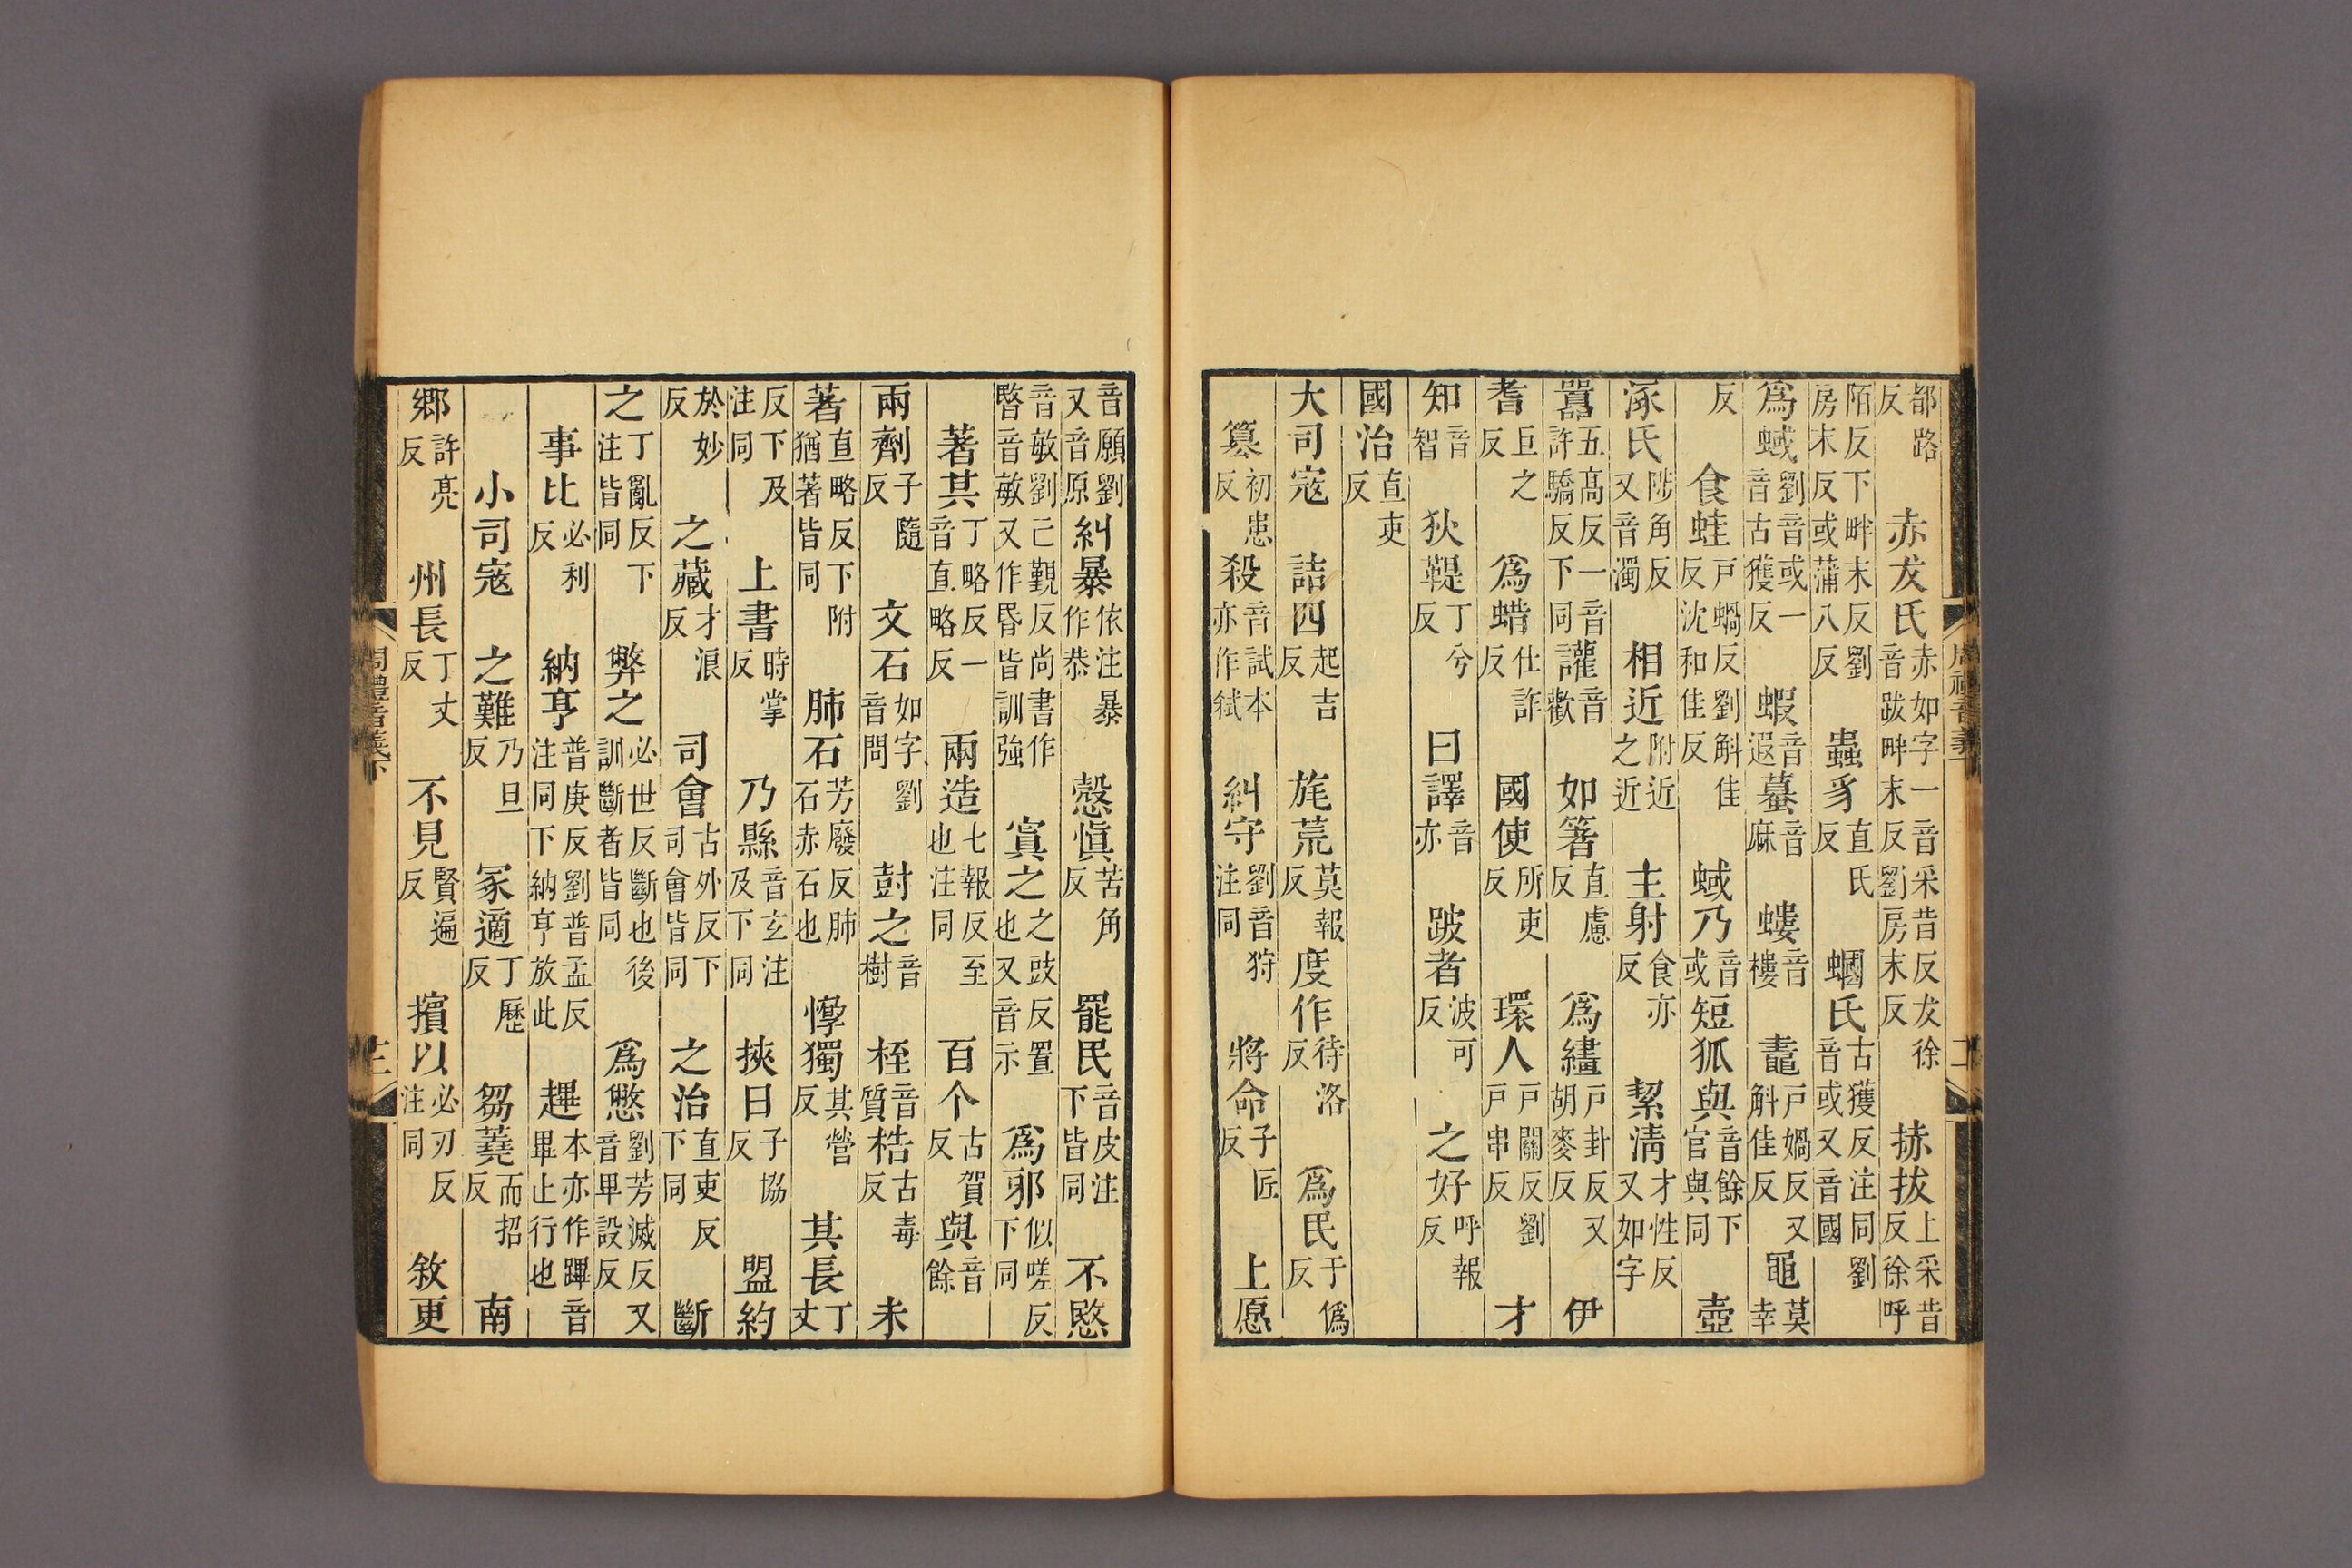 都路反　赤犮氏赤如字一音采昔反犮徐音跋畔末反劉房末反　捇拔上采昔反徐呼
陌反下畔末反劉房末反或蒲八反　蟲豸直氏反　蟈氏古獲反注同劉音或又音國
爲蜮劉音或一音古獲反　蝦音遐蟇音麻　螻音樓　鼃戸媧反又斛佳反黽莫幸
反　食蛙戸蝸反劉斛佳反沈和佳反　蜮乃音或短狐與音餘下官與同　壺
涿氏陟角反又音濁　相近附近之近　主射食亦反　絜淸才性反又如字
嚻五髙反一音許驕反下同讙音歡　如箸直慮反　爲繣戸卦反又胡麥反　伊
耆巨之反　爲蜡仕詐反　國使所吏反　環人戸關反劉戸串反　才
知音智　狄鞮丁兮反　曰譯音亦　跛者波可反　之好呼報反
國治直吏反
大司寇　詰四起吉反　旄荒莫報反度作待洛反　爲民于僞反
簒初患反殺音試本亦作弒　糾守劉音狩注同　將命子匠反　上愿
音願劉又音原糾暴依注暴作恭　愨愼苦角反　罷民音皮注下皆同　不愍
音敏劉亡覲反尚書作暋音敏又作昬皆訓強　寘之之豉反置也又音示　爲邪似嗟反下同
著其丁略反一音直略反　兩造七報反至也注同　百个古賀反與音餘
兩劑子隨反　文石如字劉音問　尌之音樹　桎音質梏古毒反　未
著直略反下附猶著皆同　肺石芳廢反肺石赤石也　惸獨其營反　其長丁丈
反下及注同　上書時掌反　乃縣音玄注及下同　挾日子協反　盟約
於妙反　之藏才浪反　司會古外反下司會皆同　之治直吏反下同　斷
之丁亂反下注皆同　弊之必世反斷也後訓斷者皆同　爲憋劉芳滅反又音畢設反
事比必利反　納亨普庚反劉普孟反注同下納亨放此　䟆本亦作蹕音畢止行也
小司寇　之難乃旦反　冢適丁歷反　芻蕘而招反　南
鄉許亮反　州長丁丈反　不見賢遍反　擯以必刃反注同　敘更
周禮音義下